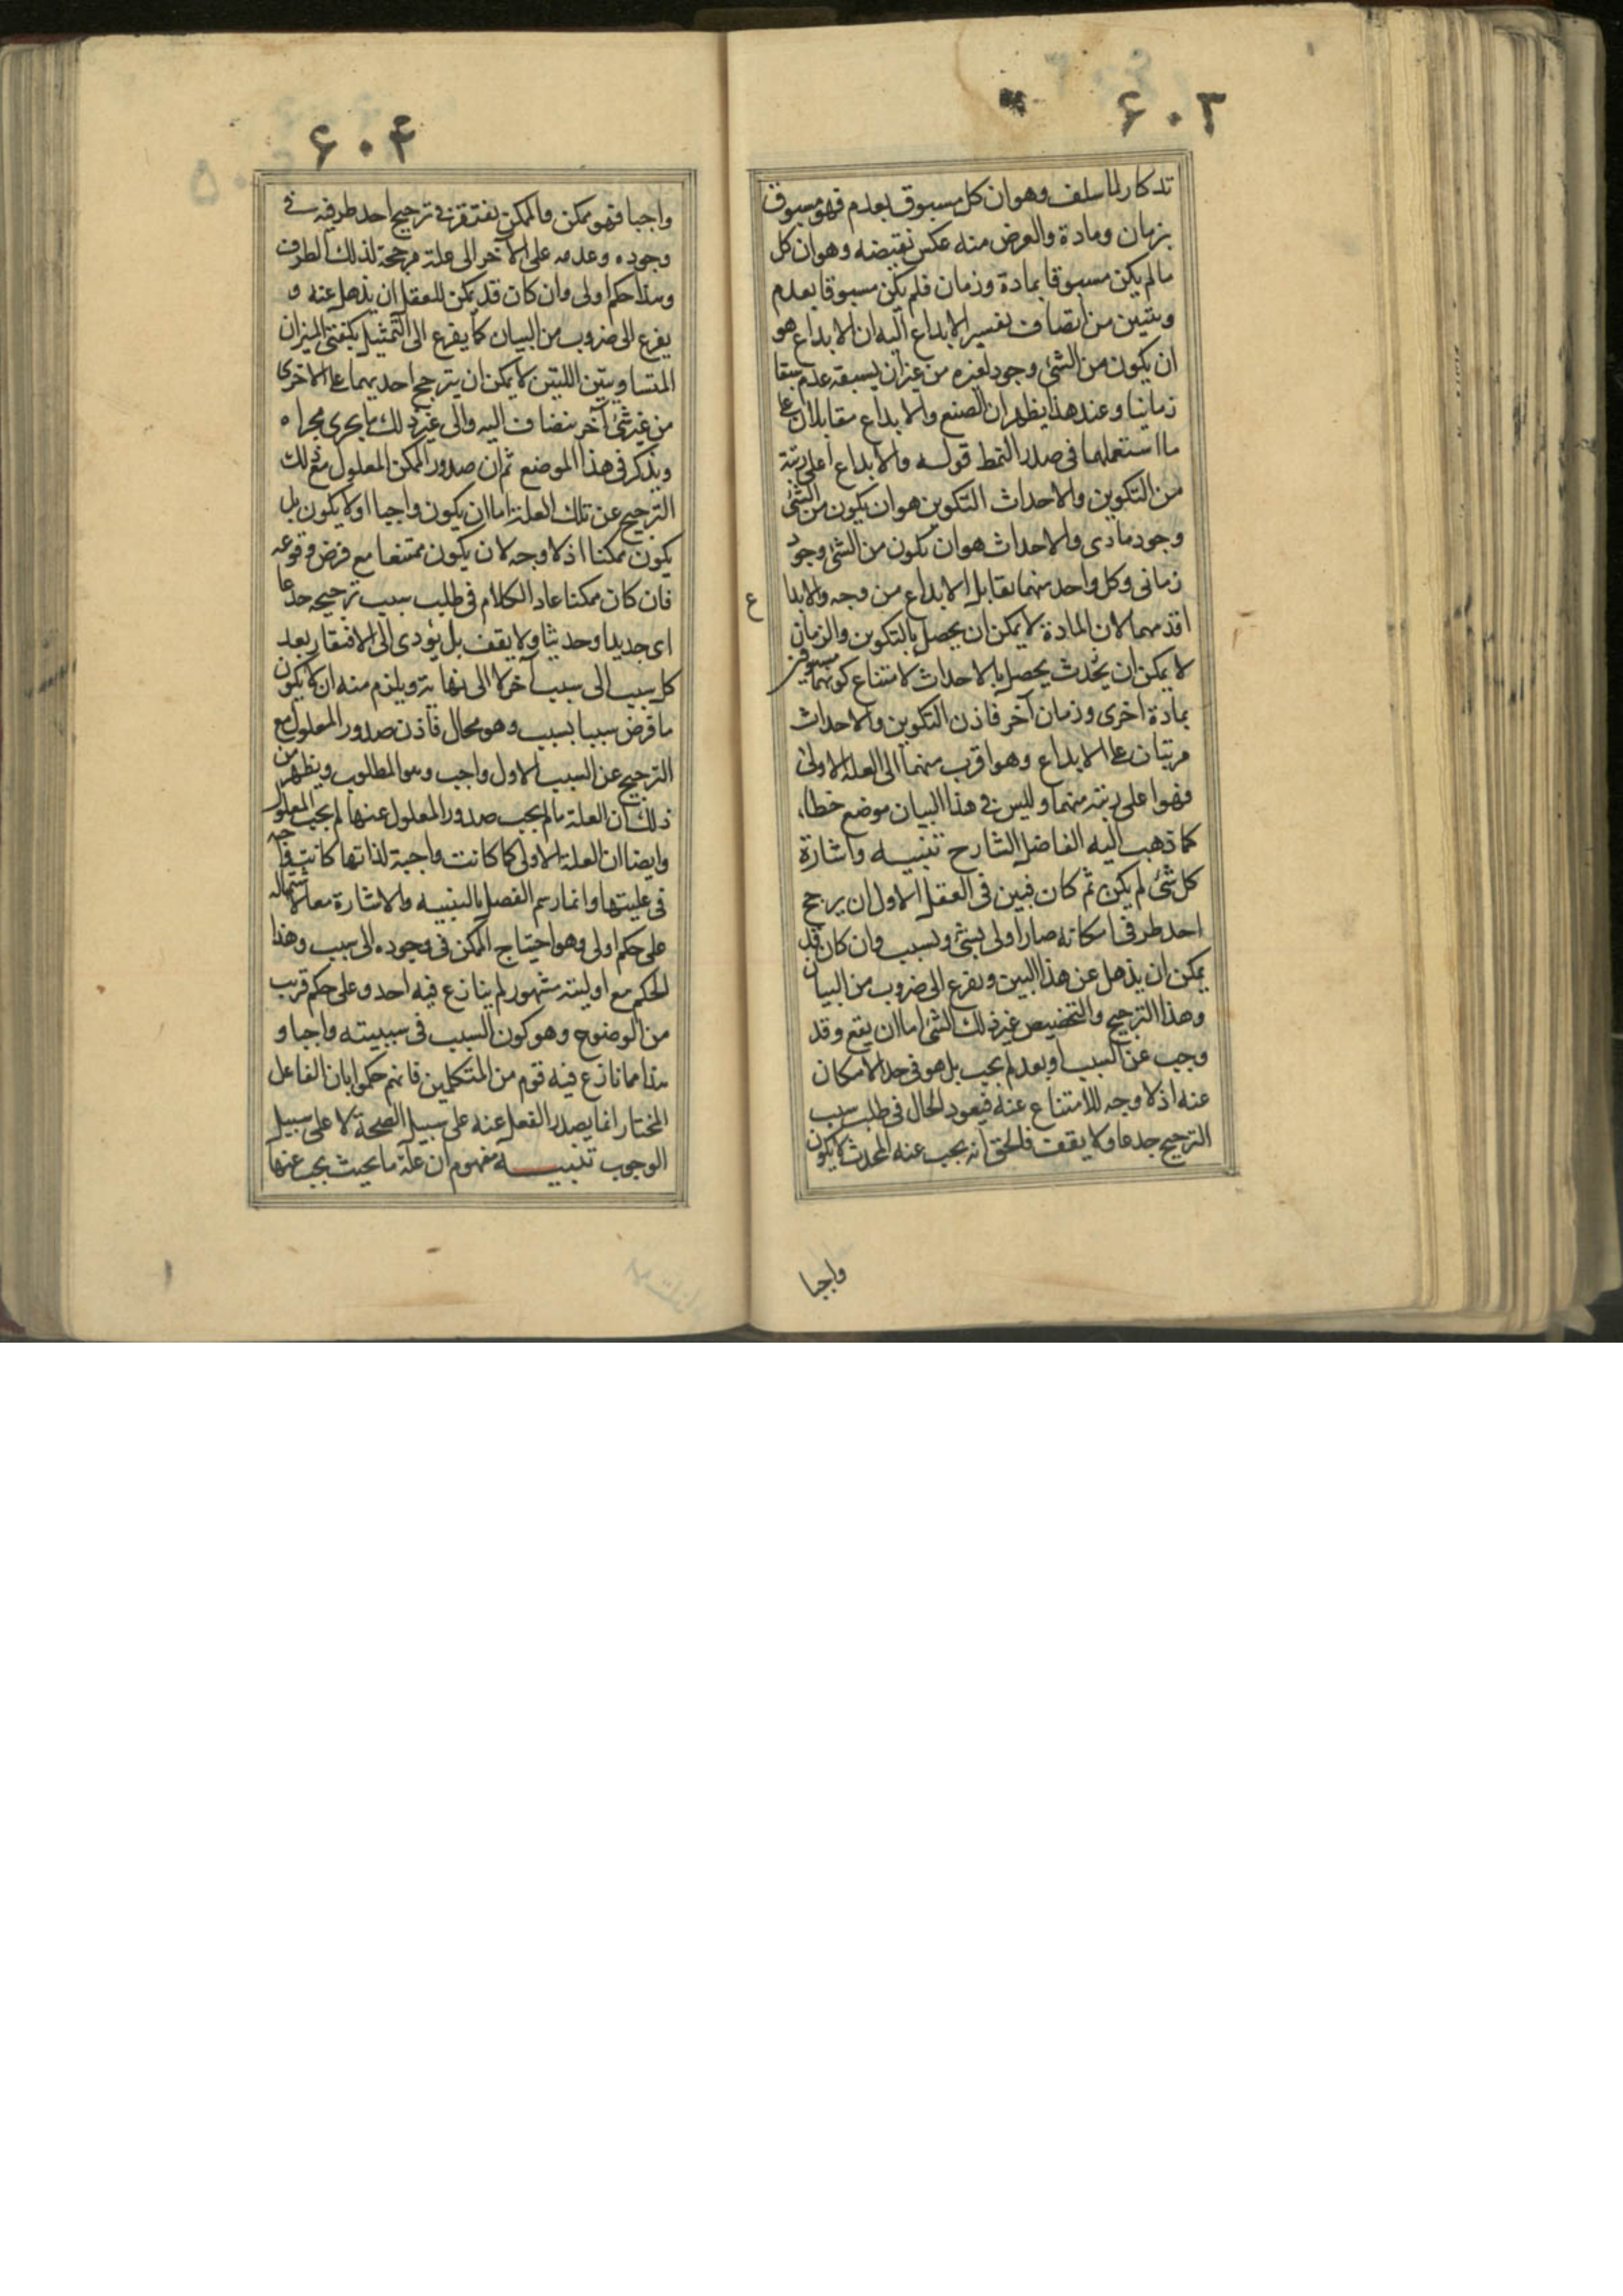 ۶۰۳
تذكار لما سلف وهو ان كل مسبوق بعدم فهو مسبوق
بزمان ومادة والغرض منه عكس نقيضه وهو ان كل
ما لم يكن مسبوقا بمادة وزمان فلم يكن مسبوقا بعدم
وتبين من انضاف تفسير الابداع اليه ان الابداع هو
ان يكون من الشئ وجود لغيره من غير ان يسبقه عدم سبقا
زمانيا وعند هذا يظهر ان الصنع والابداع متقابلان على
ما استعملهما فى صدر النمط قوله والابداع اعلى رتبة
من التكوين والاحداث التكوين هو ان يكون من الشئ
وجود مادى والاحداث هو ان يكون من الشئ وجود
زمانى وكل واحد منهما يقابل الابداع من وجه والابدا
ع
اقدم منهما لان المادة لا يمكن ان يحصل بالتكوين والزمان
لا يمكن ان يحدث يحصل بالاحداث لامتناع كونهما مسبوقين
بمادة اخرى وزمان آخر فاذن التكوين والاحداث
مرتبان على الابداع وهو اقرب منهما الى العلة الاولى
فهو اعلى رتبة منهما وليس فى هذا البيان موضع خطا،
كما ذهب اليه الفاضل الشارح تنبيه واشارة
كل شئ لم يكن ثم كان فبين فى العقل الاول ان يرجح
احد طرفى امكانه صار اولى بشئ وبسبب وان كان قد
يمكن ان يذهل عن هذا البين ويفزع الى ضروب من البيان
وهذا الترجيح والتخصيص غير ذلك الشئ اما ان يقع وقد
وجب عن السبب او بعد لم يجب بل هو فى حد الامكان
عنه اذ لا وجه للامتناع عنه فيعود الحال فى طلب سبب
الترجيح جدعا ولا يقف فالحق انه يجب عنه المحدث لا يكون
واجبا
۶۰۴
واجبا فهو ممكن والممكن يفتقر فى ترجيح احد طرفيه فى
وجوده وعدمه على الآخر الى علة مرجحة لذلك الطرف
وهذا حكم اولى وان كان قد يمكن للعقل ان يذهل عنه و
يفزع الى ضروب من البيان كما يفزع الى التمثيل بكفتى الميزان
المتساويتين اللتين لا يمكن ان يترجح احديهما على الاخرى
من غير شئ آخر ينضاف اليه والى غير ذلك ما يجرى مجراه
ويذكر فى هذا الموضع ثم ان صدور الممكن المعلول مع ذلك
الترجيح عن تلك العلة اما ان يكون واجبا او لا يكون بل
يكون ممكنا اذ لا وجه لان يكون ممتنعا مع فرض وقوعه
فان كان ممكنا عاد الكلام فى طلب سبب ترجيحه جدعا
اى جديدا وحديثا ولا يقف بل يؤدى الى الافتقار بعد
كل سبب الى سبب آخر لا الى نهاية ويلزم منه ان لا يكون
ما فرض سببا بسبب وهو محال فاذن صدور المعلول مع
الترجيح عن السبب الاول واجب وهو المطلوب ويظهر من
ذلك ان العلة ما لم يجب صدور المعلول عنها لم يجب المعلول
وايضا ان العلة الاولى كما كانت واجبة لذاتها كانت واجبة
فى عليتها وانما رسم الفصل بالتنبيه والاشارة معا لاشتماله
على حكم اولى وهو احتياج الممكن فى وجوده الى سبب وهذا
الحكم مع اوليته مشهور لم ينازع فيه احد وعلى حكم قريب
من الوضوح وهو كون السبب فى سببيته واجبا و
هذا مما نازع فيه قوم من المتكلمين فانهم حكموا بان الفاعل
المختار انما يصدر الفعل عنه على سبيل الصحة لا على سبيل
الوجوب تنبيه مفهوم ان علة ما بحيث يجب عنها